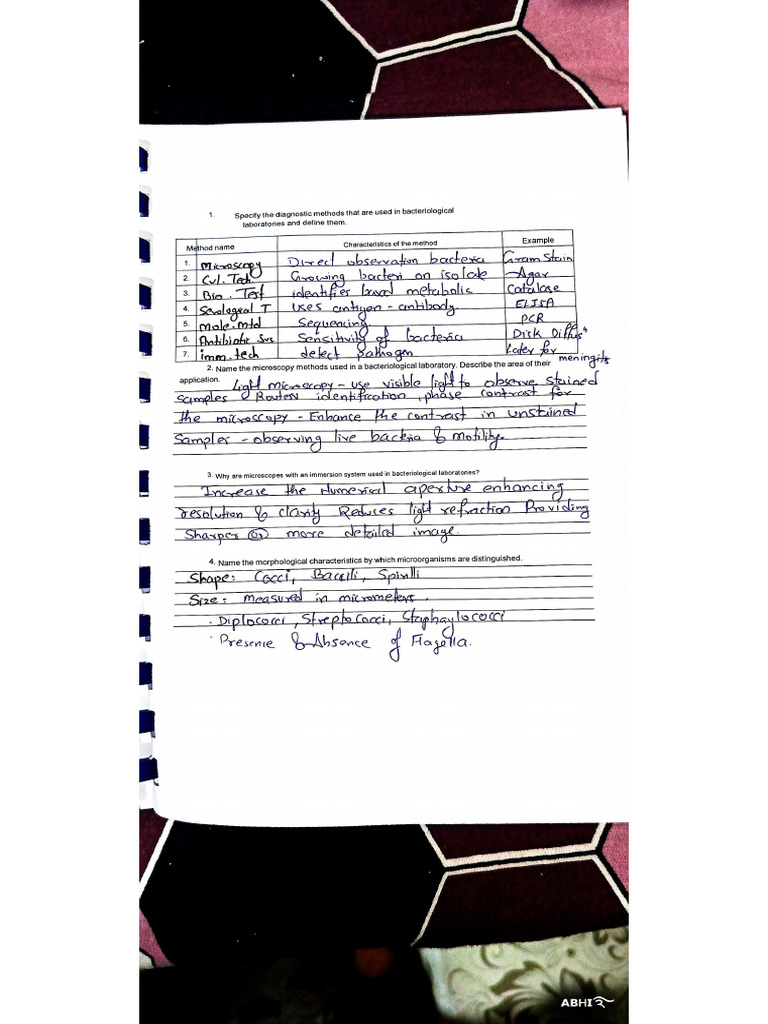 1. Specify the diagnostic methods that are used in bacteriological
laboratories and define them.
Method name Characteristics of the method Example
1. Microscopy Direct observation bacteria Gram Stain
2. Cul. Tech Growing bacteri on isolate Agar
3. Bio. Test identifies based metabolic Catalase
4. Serological T uses antigen - antibody ELISA
5. Mole. mtd Sequencing PCR
6. Antibiotic Sus Sensitivity of bacteria Disk Diffusn
7. imm. tech detect pathogen for meningits
2. Name the microscopy methods used in a bacteriological laboratory. Describe the area of their
application. Light microscopy - use visible light to observe stained
samples identification, phase contrast for
the microscopy - Enhance the contrast in unstained
Samples - observing live & motility.
3. Why are microscopes with an immersion system used in bacteriological laboratories?
Increase the Numerical aperture enhancing
resolution & clarity Reduces light refraction Providing
Sharper or more detailed image.
4. Name the morphological characteristics by which microorganisms are distinguished.
Shape: Cocci, Bacilli, Spirilli
Size: measured in micrometers.
· Diplococci, Streptococci, Staphaylococci
· Presence & Absence of Flagella.
ABHI